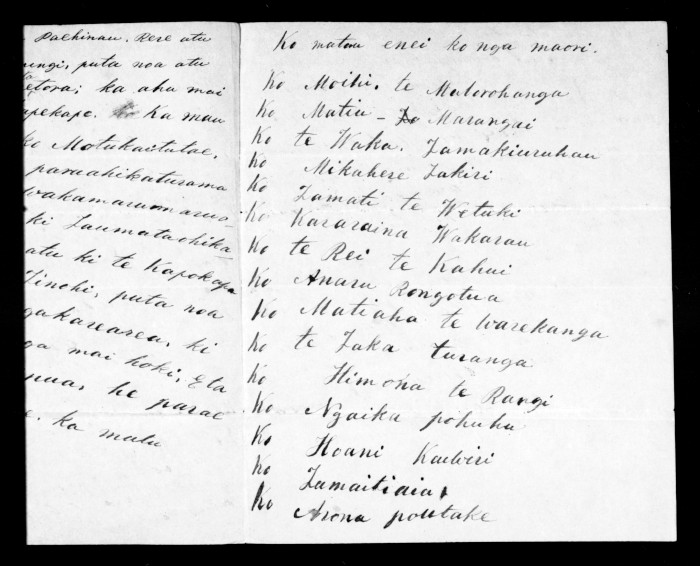 Paehinau. Rere atu
ungi, puta noa atu
etora; ka ahu mai
apekapo. Ka mau
ko Motukaitutae,
paraahikaturama
wakamarumaru-
ki Taumataohika-
atu ki te Kapokapo
Tinohi, puta noa
gakarearea, ki
ga mai hoki, E ta
pua, he parae
e. ka mutu
Ko matou enei ko nga maori.
Ko Moihi. te Matorohanga
Ko Matiu - Marangai
Ko te Waka. Tamakiuruhau
Ko Mikahere Takiri
Ko Tamati te Wetuki
Ko Kararaina Wakarau
Ko te Rei te Kahui
Ko Anaru Rongotua
Ko Matiaha te Warekanga
Ko te Taka turanga
Ko Himona te Rangi
Ko Ngaika pohuhu
Ko Hoani Kawiri
Ko Tamaitiaia
Ko Arona poutake